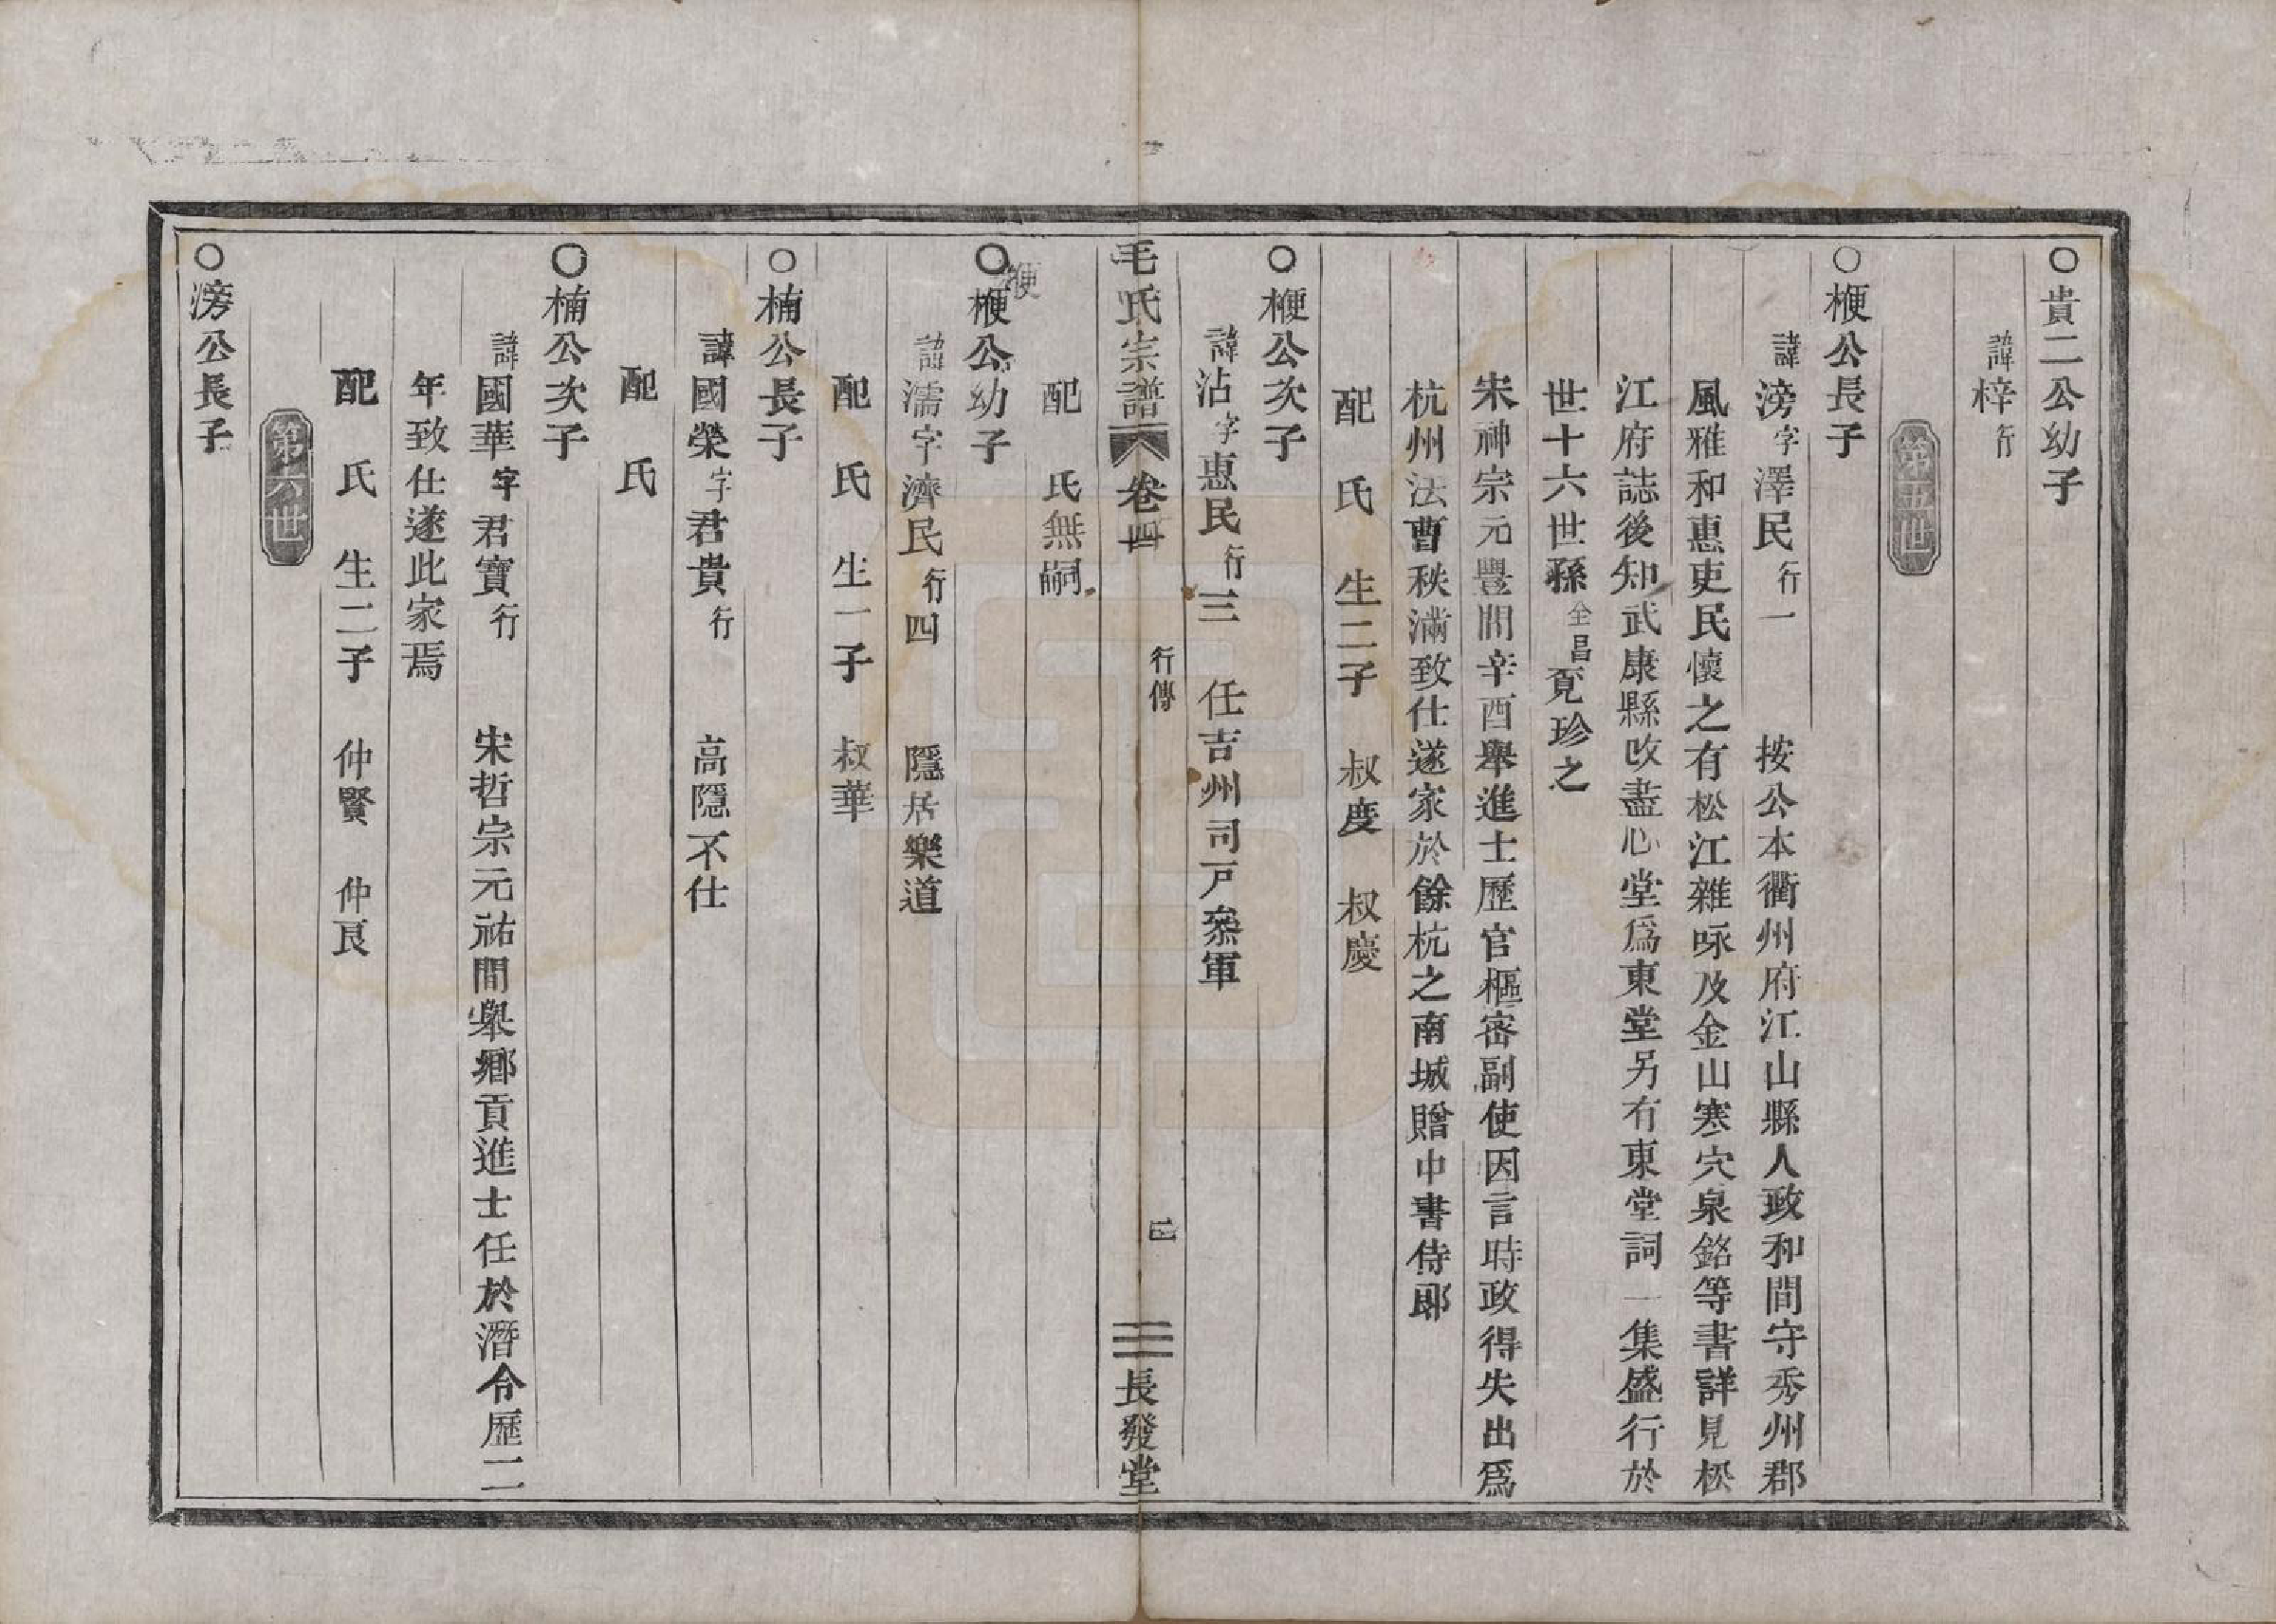 ○貴二公幼子
諱梓行
第五世
○楩公長子
諱滂字澤民行一　按公本衢州府江山縣人政和間守秀州郡
風雅和惠吏民懷之有松江雜咏及金山寒穴泉銘等書詳見松
江府誌後知武康縣改盡心堂爲東堂另有東堂詞一集盛行於
世十六世孫仝昌覓珍之
宋神宗元豐間辛酉舉進士歷官樞密副使因言時政得失出爲
杭州法曹秩滿致仕遂家於餘杭之南城贈中書侍郎
配　氏　生二子　叔度　叔慶
○楩公次子
諱沾字惠民行三　任吉州司戸叅軍
毛氏宗譜　卷四　行傳　長發堂
配　氏無嗣
○楩公幼子
楩
諱濡字濟民行四　隱居樂道
配　氏　生一子　叔華
○楠公長子
諱國榮字君貴行　高隱不仕
配　氏
○楠公次子
諱國華字君寶行　宋哲宗元祐間舉鄉貢進士任於潛令歷二
年致仕遂此家焉
配　氏　生二子　仲賢　仲良
第六世
○滂公長子